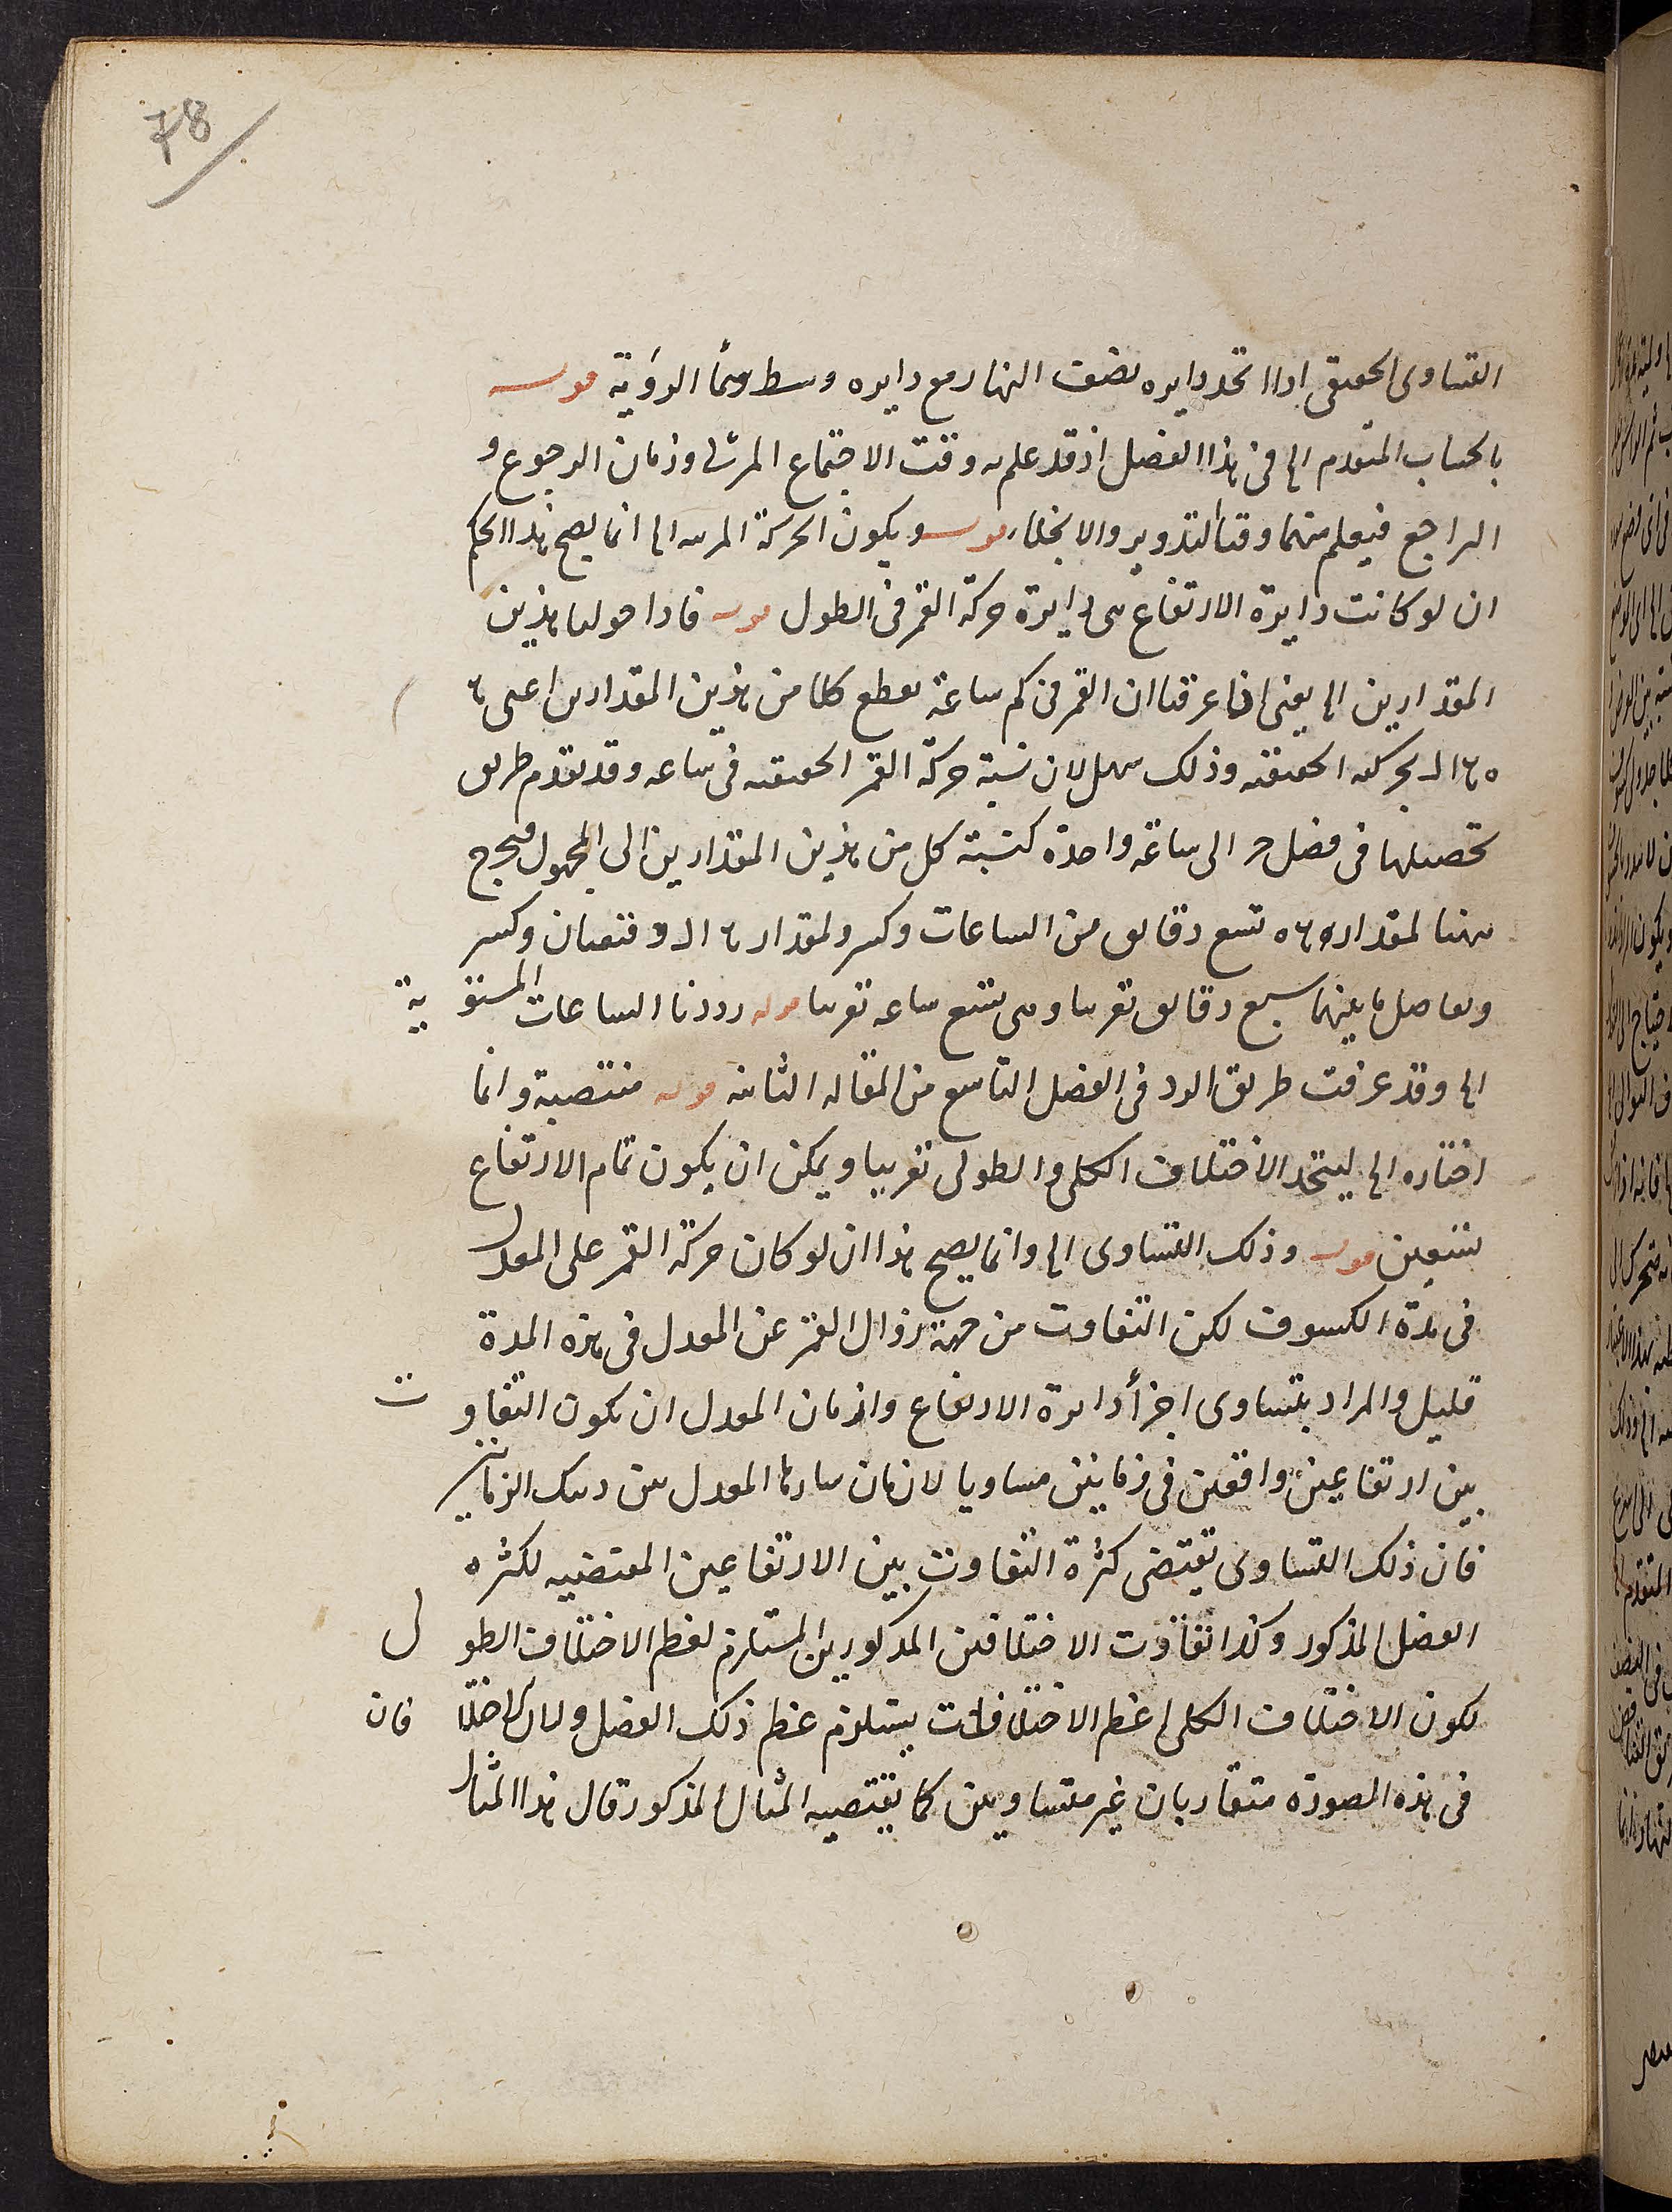 78
التساوى الحقيقى اذا اتحد دايره نصف النهار مع دايره وسط سمآ الرؤية قوله
بالحساب المتقدم الخ فى هذا الفصل اذ قد علم به وقت الاجتماع المرئى وزمان الرجوع و
الراجع فيعلم منهما وقتا التدوير والانجلاء قوله ويكون الحركة المرئيه الخ انما يصح هذا الحكم
ان لو كانت دايرة الارتفاع هى دايرة حركة القمر فى الطول قوله فاذا حولنا هذين
المقدارين الخ يعنى اذا عرفنا ان القمر فى كم ساعة يقطع كلا من هذين المقدارين اعنى
بحركته الحقيقيه وذلك سهل لان نسبة حركة القمر الحقيقيه فى ساعه وقد تقدم طريق
تحصيلها فى فصل الى ساعة واحدة كنسبة كل من هذين المقدارين الى المجهول فيخرج
ههنا لمقدار تسع دقايق من الساعات وكسر ولمقدار دقيقتان وكسر
وتفاضل ما بينهما سبع دقايق تقريبا وهى تسع ساعه تقريبا قوله رددنا الساعات المستوية
الخ وقد عرفت طريق الرد فى الفصل التاسع من المقاله الثانيه قوله منتصبة وانما
اختاره الخ ليتحد الاختلاف الكلى والطولى تقريبا ويمكن ان يكون تمام الارتفاع
تسعين قوله وذلك التساوى الخ وانما يصح هذا ان لو كان حركة القمر على المعدل
فى مدة الكسوف لكن التفاوت من جهة زوال القمر عن المعدل فى هذه المدة
قليل والمراد بتساوى اجزأ دايرة الارتفاع وازمان المعدل ان يكون التفاوت
بين ارتفاعين واقعين فى زمانين مساويا لازمان المعدل بين ذينك الزمانين
فان ذلك التساوى يقتضى كثرة التفاوت بين الارتفاعين المقتضيه لكثره
الفضل المذكور وكذا تفاوت الاختلافين المذكورين المستلزم لعظم الاختلاف الطول
لكون الاختلاف الكلى اعظم الاختلافات يستلزم عظم ذلك الفضل ولان الاختلافان
فى هذه الصورة متقاربان غير متساويين كما يقتضيه المثال المذكور قال هذا المثال